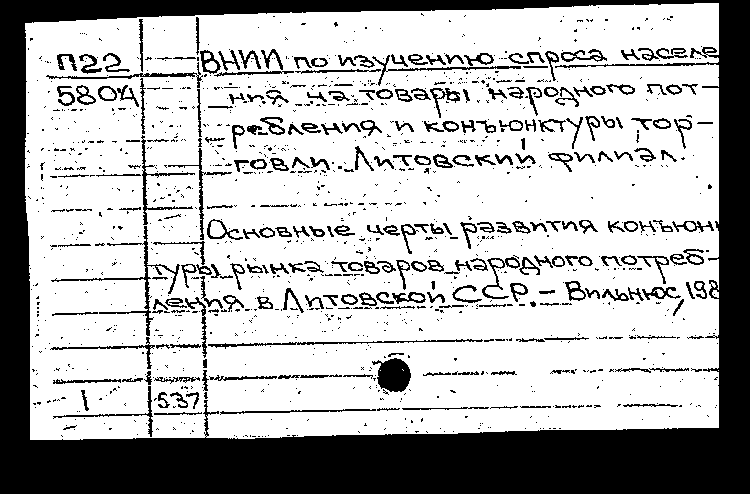 П22 ВНИИ по изучению спроса населе
5804 ния на товары народного пот-
ребления и конъюнктуры тор-
говли. Литовский филиал.
Основные черты развития конъюн
туры рынка товаров народного потреб-
ления в Литовской ССР. - Вильнюс, 198
1 537